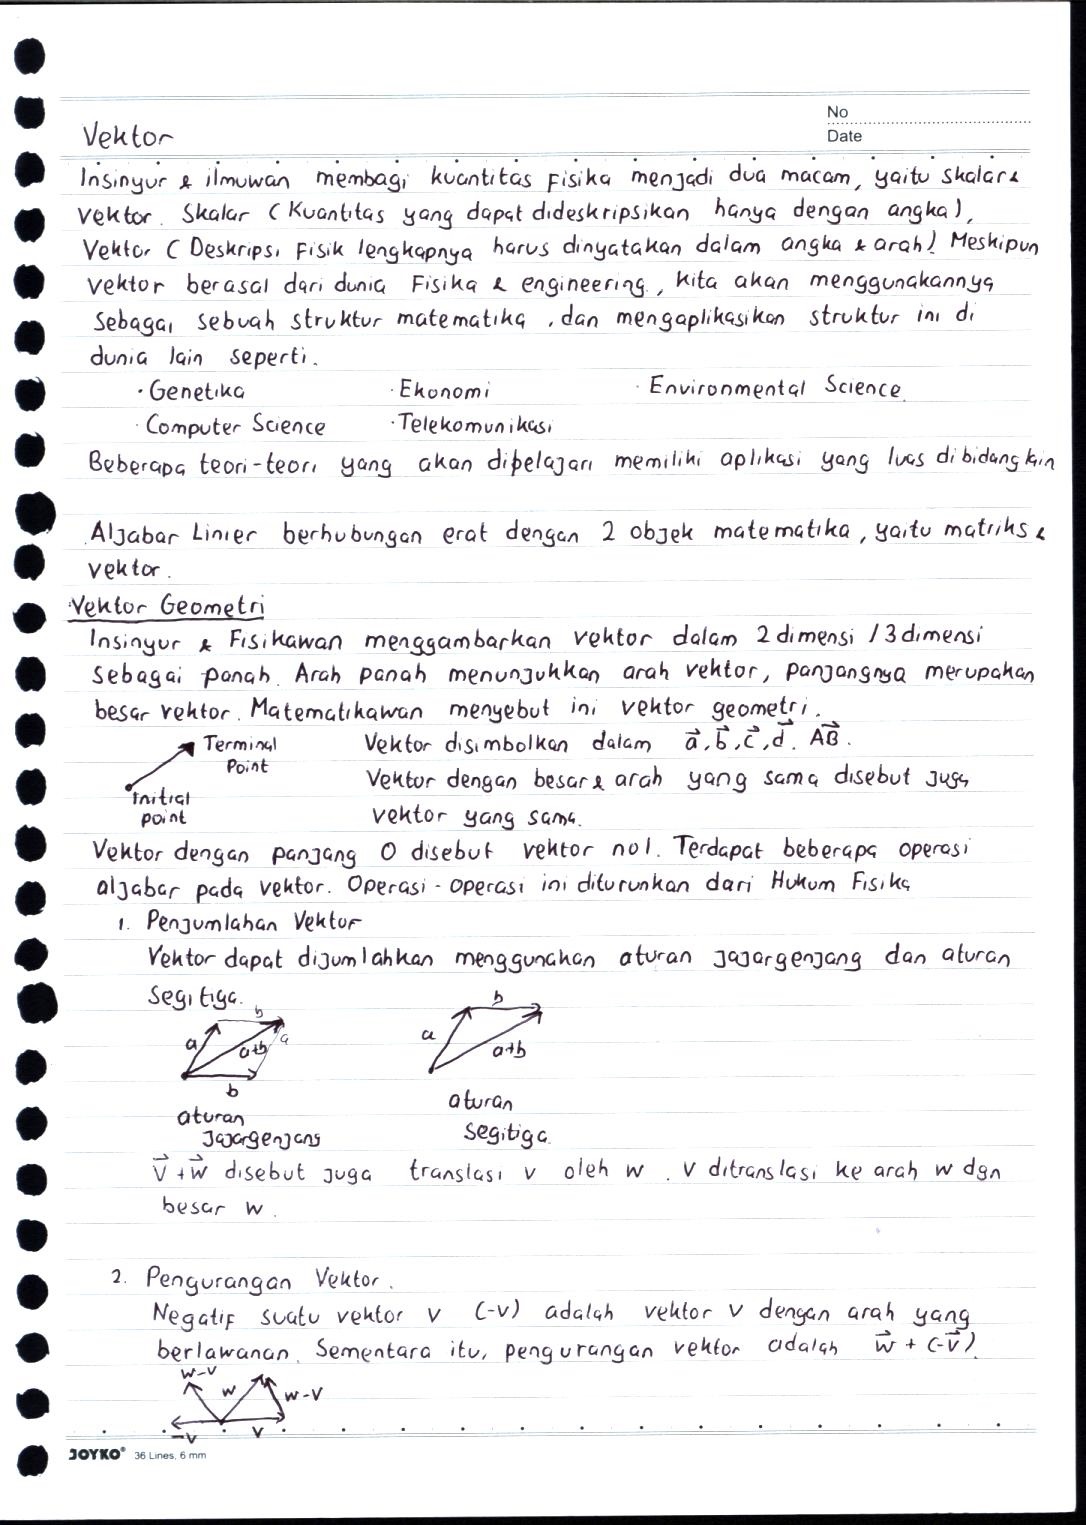 No
Date
Vektor
Insinyur & ilmuwan membagi kuantitas Fisika menjadi dua macam, yaitu skalar &
vektor. Skalar (Kuantitas yang dapat dideskripsikan hanya dengan angka),
Vektor (Deskripsi Fisik lengkapnya harus dinyatakan dalam angka & arah). Meskipun
vektor berasal dari dunia Fisika & engineering, kita akan menggunakannya
Sebagai sebuah struktur matematika, dan mengaplikasikan struktur ini di
dunia lain seperti.
· Genetika · Ekonomi · Environmental Science
· Computer Science · Telekomunikasi
Beberapa teori-teori yang akan dipelajari memiliki aplikasi yang luas dibidang lain
Aljabar Linier berhubungan erat dengan 2 objek matematika, yaitu matriks &
vektor.
Vektor Geometri
Insinyur & Fisikawan menggambarkan vektor dalam 2 dimensi / 3 dimensi
Sebagai panah. Arah panah menunjukkan arah vektor, panjangnya merupakan
besar vektor. Matematikawan menyebut ini vektor geometri.
Terminal
Point
Initial
point
Vektor disimbolkan dalam a⃗, b⃗, c⃗, d⃗. AB⃗.
Vektor dengan besar & arah yang sama disebut juga
vektor yang sama.
Vektor dengan panjang 0 disebut vektor nol. Terdapat beberapa operasi
aljabar pada vektor. Operasi-operasi ini diturunkan dari Hukum Fisika
1. Penjumlahan Vektor
Vektor dapat dijumlahkan menggunakan aturan jajargenjang dan aturan
Segitiga.
b
a
a+b
a
b
aturan
jajargenjang
b
a
a+b
aturan
segitiga
v⃗ + w⃗ disebut juga translasi v oleh w. v ditranslasi ke arah w dgn
besar w.
2. Pengurangan Vektor.
Negatif suatu vektor v (-v) adalah vektor v dengan arah yang
berlawanan. Sementara itu, pengurangan vektor adalah w⃗ + (-v⃗)
w-v
w
w-v
-v
v
JOYKO® 36 Lines, 6 mm